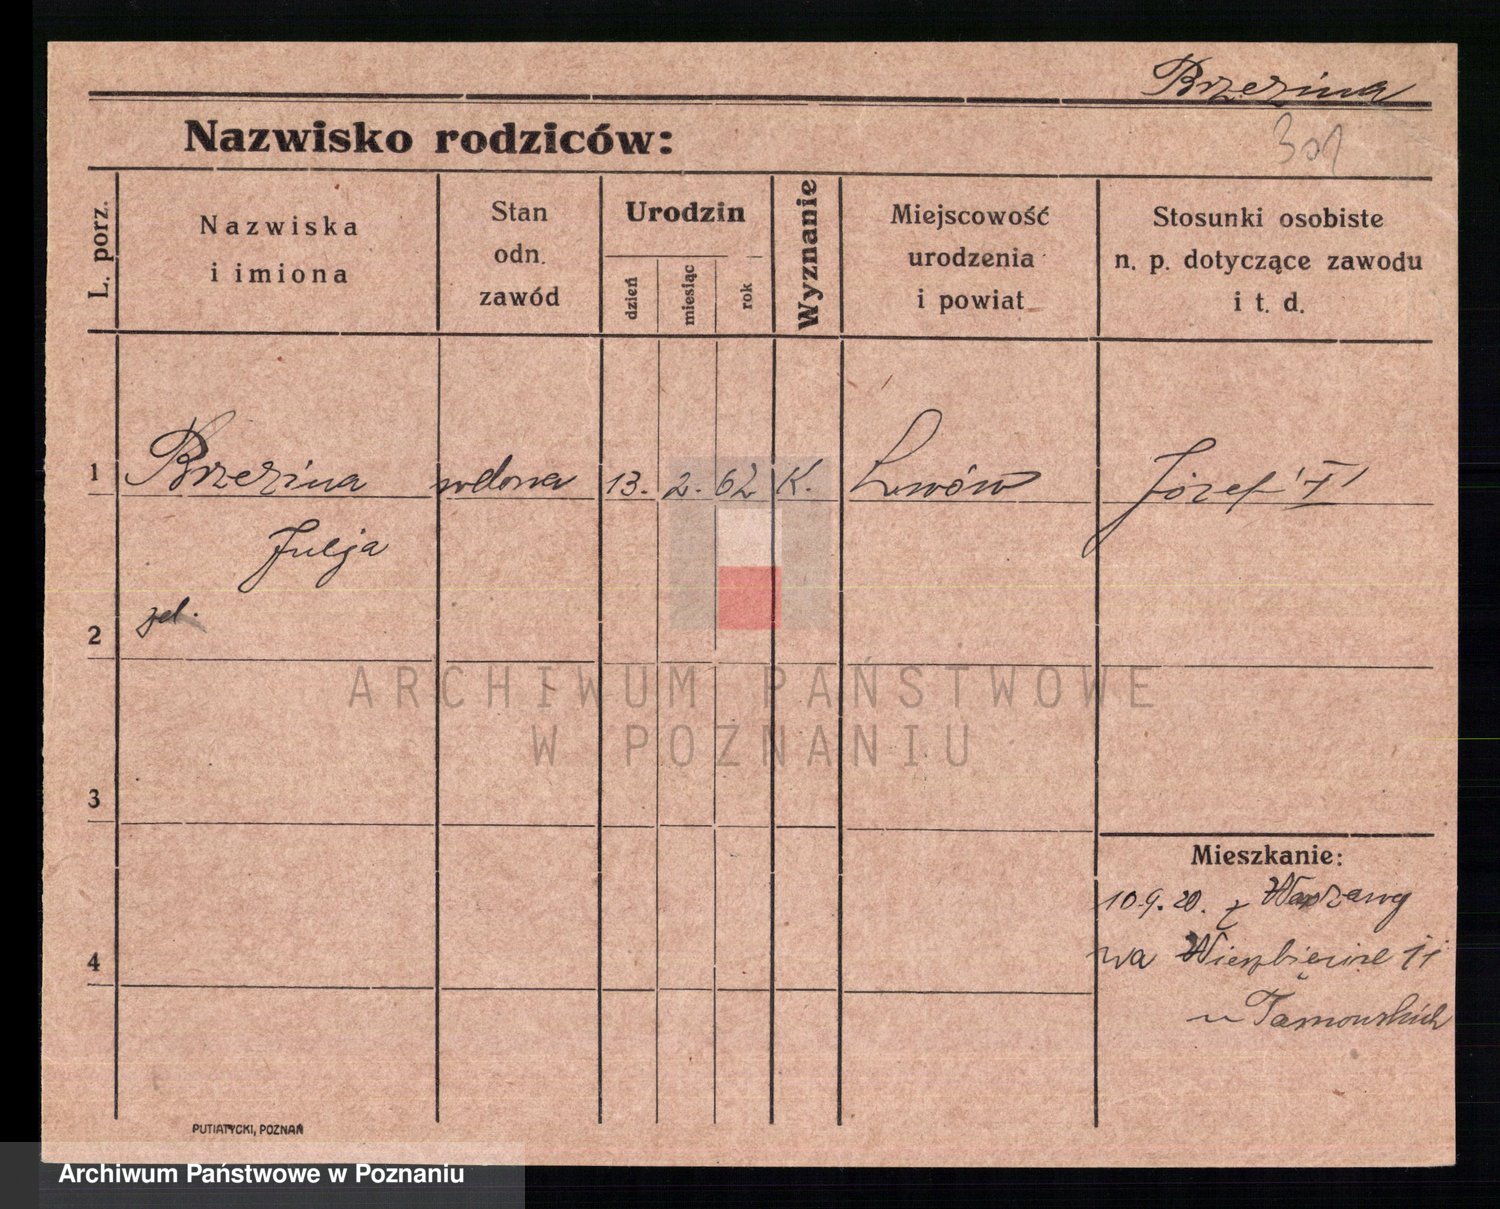 Brzezina
301
Nazwisko rodziców:
L. porz.
Nazwiska
i imiona
Stan
odn.
zawód
Urodzin
dzień
miesiąc
rok
Wyznanie
Miejscowość
urodzenia
i powiat
Stosunki osobiste
n. p. dotyczące zawodu
i t. d.
1 Brzezina wdowa 13. 2. 62 K. Lwów Józef
Julja
2
3
4
Mieszkanie:
10.9.20. z Warszawy
na Wierzbięcice 11
u Tarnowskich
PUTIATYCKI, POZNAŃ
ARCHIWUM PAŃSTWOWE
W POZNANIU
Archiwum Państwowe w Poznaniu